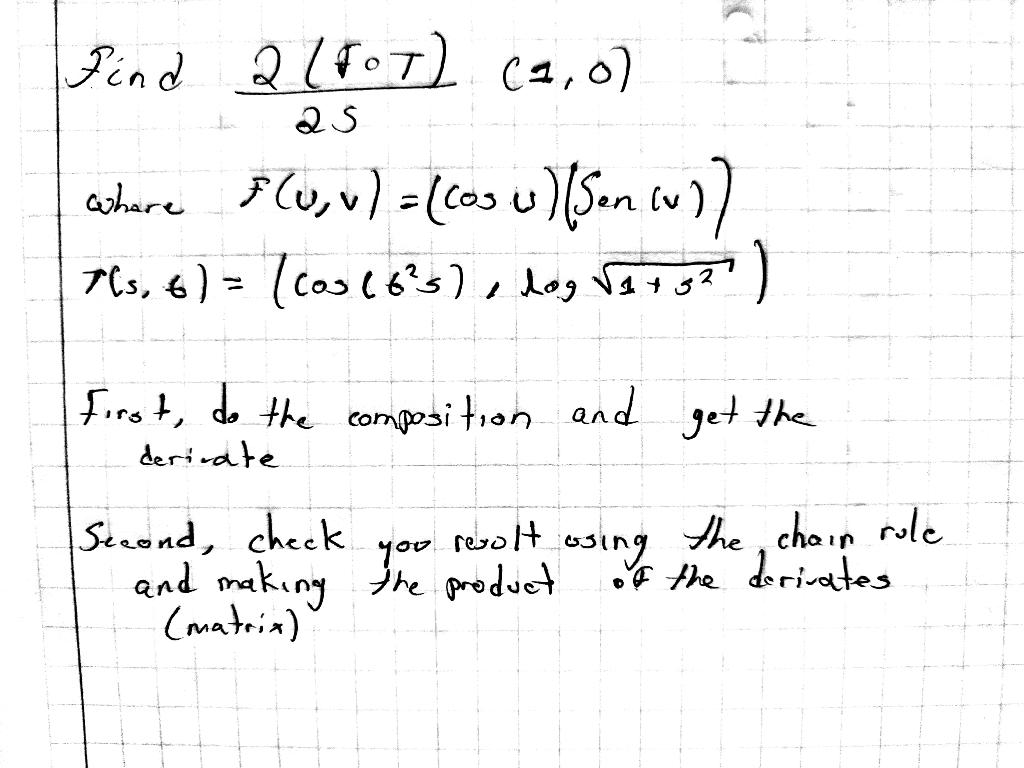 Find ∂(f∘T)/∂s (1,0)
where f(u,v) = (cos u)(Sen (v))
T(s,t) = (cos(t²s), log √1+s²)
First, do the composition and get the
derivate
Second, check you result using the chain rule
and making the product of the derivates
(matrix)